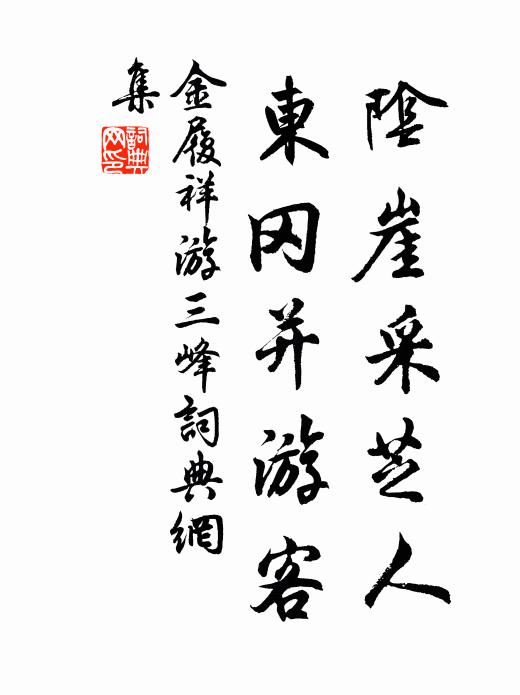 陰崖采芝人
東冈并游客
金履祥游三峰詞典網
集
詞典網印